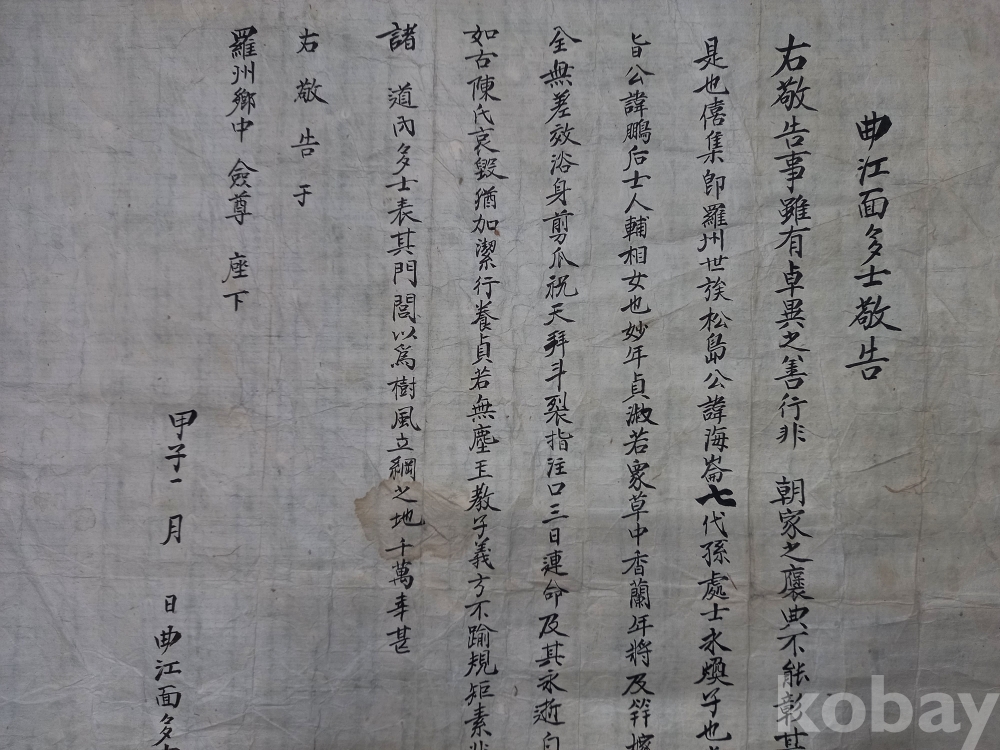 曲江面多士敬告
右敬告事雖有卓異之善行非 朝家之襃典不能彰其
是也僖集卽羅州世族松島公諱海崙七代孫處士永煥子也
旨公諱鵬后士人輔相女也妙年貞淑若衆草中香蘭年將及笄
全無差效浴身剪爪祝天拜斗裂指注口三日連命及其永逝
如古陳氏哀毀猶加潔行養貞若無塵玉教子義方不踰規矩素
諸 道內多士表其門閭以爲樹風立綱之地千萬幸甚
右敬告于
羅州鄉中 僉尊 座下
甲子一月 日曲江面多
kobay